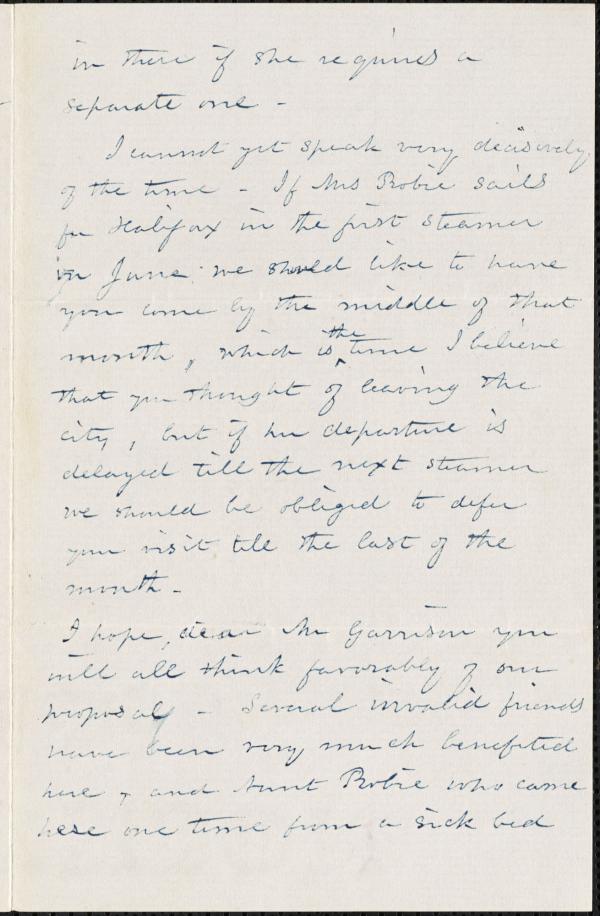 in there if she requires a
separate one -
I cannot yet speak very decisively
of the time - If Mrs Robie sails
for Halifax in the first steamer
in June we should like to have
you come by the middle of that
month, which is the time I believe
that you thought of leaving the
city, but if her departure is
delayed till the next steamer
we should be obliged to defer
your visit till the last of the
month -
I hope, dear Mr Garrison you
will all think favorably of our
proposal - Several invalid friends
have been very much benefited
here, and Aunt Robie who came
here one time from a sick bed